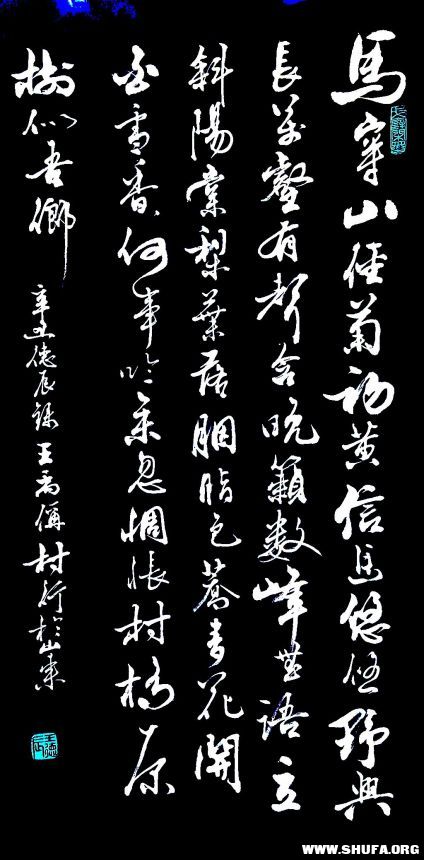 馬穿山徑菊初黃信馬悠悠野興
長萬壑有聲含晚籟數峰無語立
斜陽棠梨葉落胭脂色蕎麥花開
白雪香何事吟余忽惆悵村橋原
樹似吾鄉 辛丑德辰錄王禹偁村行於山東
WWW.SHUFA.ORG